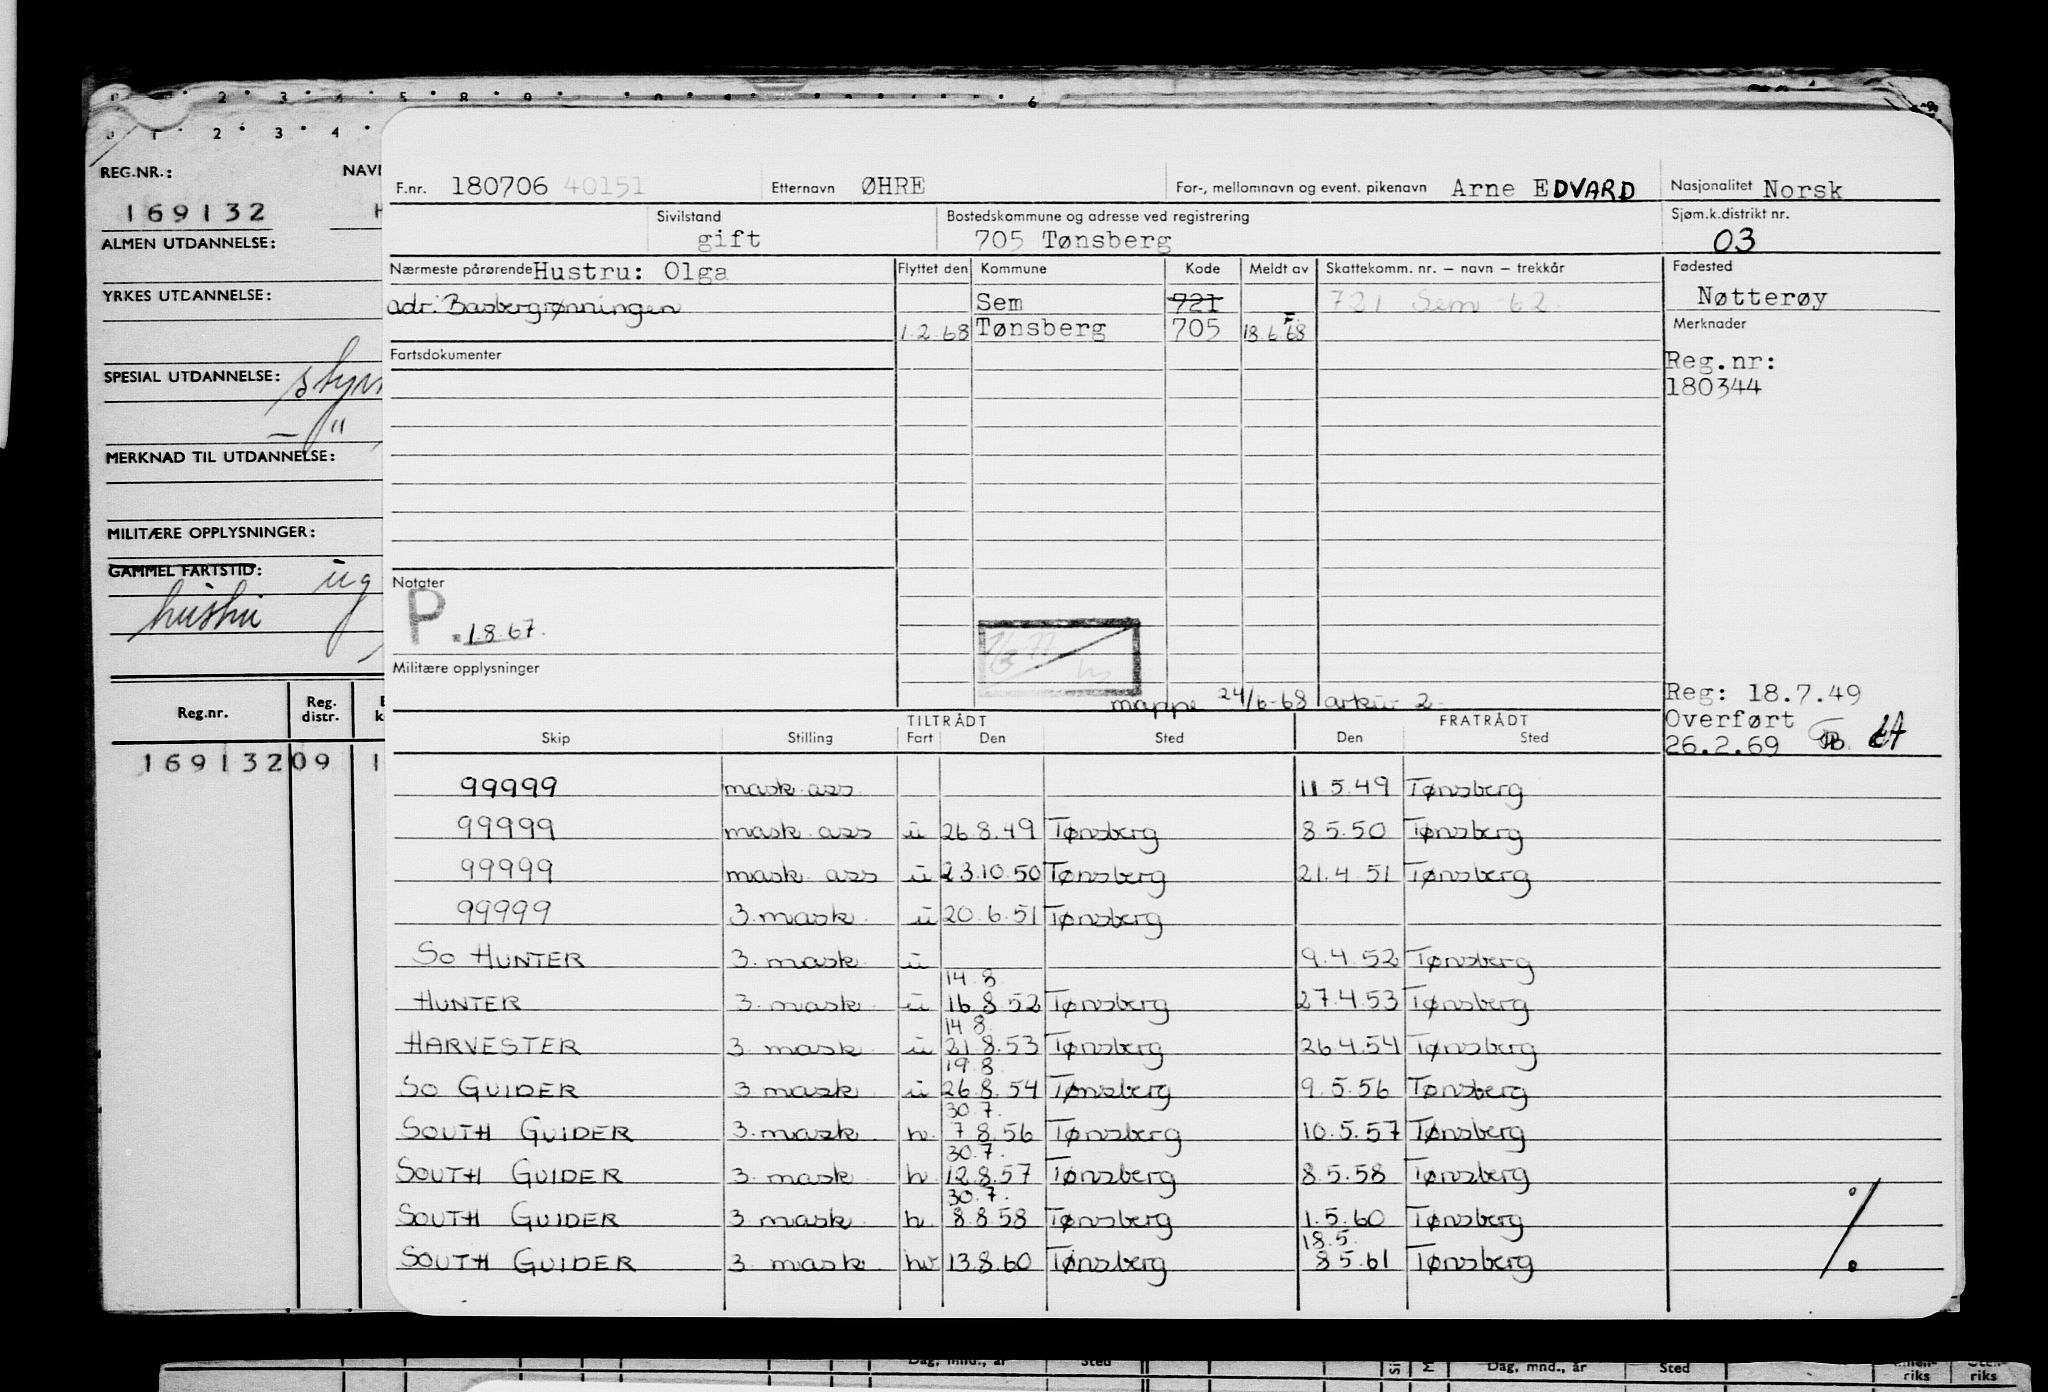 REG.NR.: NAV
169132
ALMEN UTDANNELSE:
YRKES UTDANNELSE:
SPESIAL UTDANNELSE:
— " 
MERKNAD TIL UTDANNELSE:
MILITÆRE OPPLYSNINGER:
GAMMEL FARTSTID: ug
hushu
Reg.nr. Reg. distr.
169132 09 1
F.nr. 180706 40151 Etternavn ØHRE For-, mellomnavn og event. pikenavn Arne EDVARD Nasjonalitet Norsk
Sivilstand Bostedskommune og adresse ved registrering Sjøm.k.distrikt nr.
gift 705 Tønsberg 03
Nærmeste pårørende Hustru: Olga Flyttet den Kommune Kode Meldt av Skattekomm. nr. – navn – trekkår Fødested
adr. Basbergrønningen Sem 721 721 Sem -62 Nøtterøy
1.2.68 Tønsberg 705 F. 18.6.68 Merknader
Fartsdokumenter Reg.nr:
180344
Notater
P. 1.8.67.
Militære opplysninger
mappe 24/6-68 arkiv 2
Reg: 18.7.49
Overført
26.2.69
TILTRÅDT FRATRÅDT
Skip Stilling Fart Den Sted Den Sted
99999 mask.ass 11.5.49 Tønsberg
99999 mask ass u 26.8.49 Tønsberg 8.5.50 Tønsberg
99999 mask. ass u 23.10.50 Tønsberg 21.4.51 Tønsberg
99999 3.mask. u 20.6.51 Tønsberg
SO HUNTER 3. mask. u 9.4.52 Tønsberg
14.8.
HUNTER 3. mask. u 16.8.52 Tønsberg 27.4.53 Tønsberg
14.8.
HARVESTER 3. mask. u 21.8.53 Tønsberg 26.4.54 Tønsberg
19.8
SO GUIDER 3 mask u 26.8.54 Tønsberg 9.5.56 Tønsberg
30.7.
SOUTH GUIDER 3.mask. h. 7.8.56 Tønsberg 10.5.57 Tønsberg
30.7.
SOUTH GUIDER 3. mask. h. 12.8.57 Tønsberg 8.5.58 Tønsberg
30.7.
SOUTH GUIDER 3 mask. h. 8.8.58 Tønsberg 1.5.60 Tønsberg
18.5.
SOUTH GUIDER 3. mask. hv 13.8.60 Tønsberg 8.5.61 Tønsberg
%
Dag, mnd., år Sted Dag, mnd., år Sted
riks riks